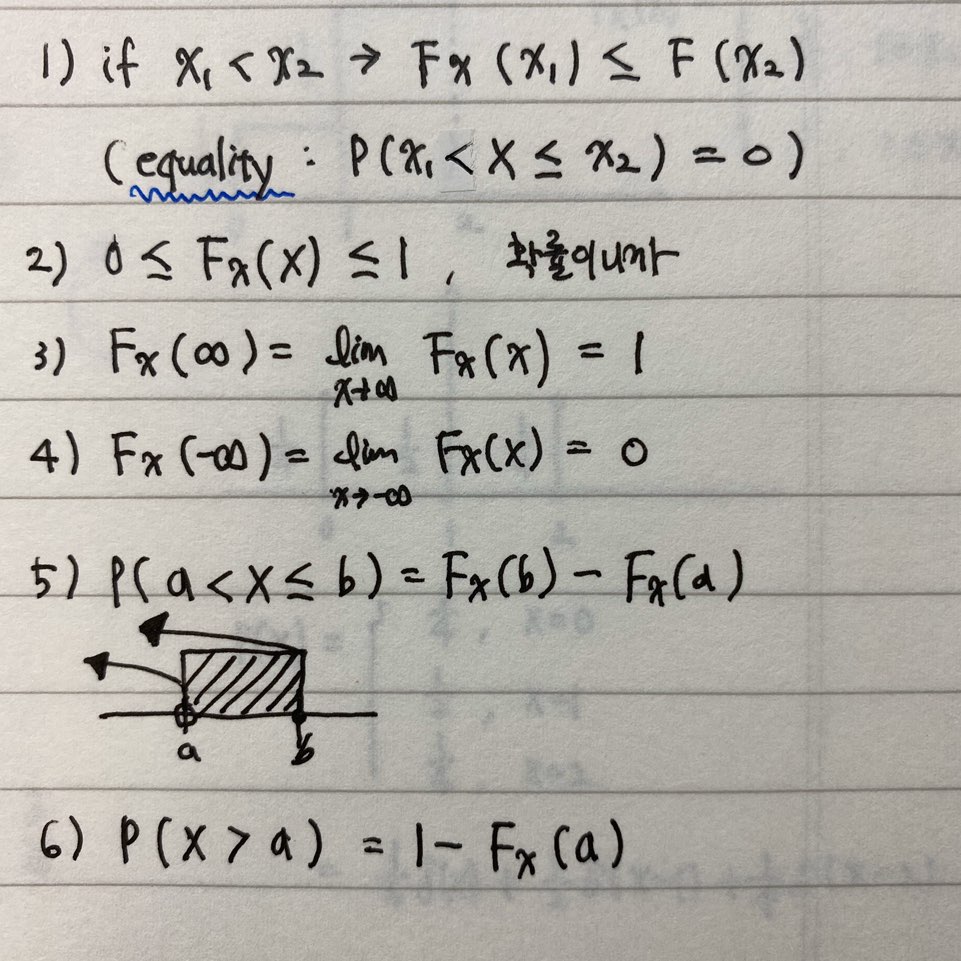 1) if x₁ < x₂ → Fx (x₁) ≤ F (x₂)
(equality : P(x₁ < X ≤ x₂) = 0)
2) 0 ≤ Fx(x) ≤ 1 , 확률이니까
3) Fx (∞) = lim Fx(x) = 1
x→∞
4) Fx (-∞) = lim Fx(x) = 0
x→-∞
5) P( a < X ≤ b) = Fx(b) - Fx(a)
a b
6) P (X > a) = 1 - Fx (a)